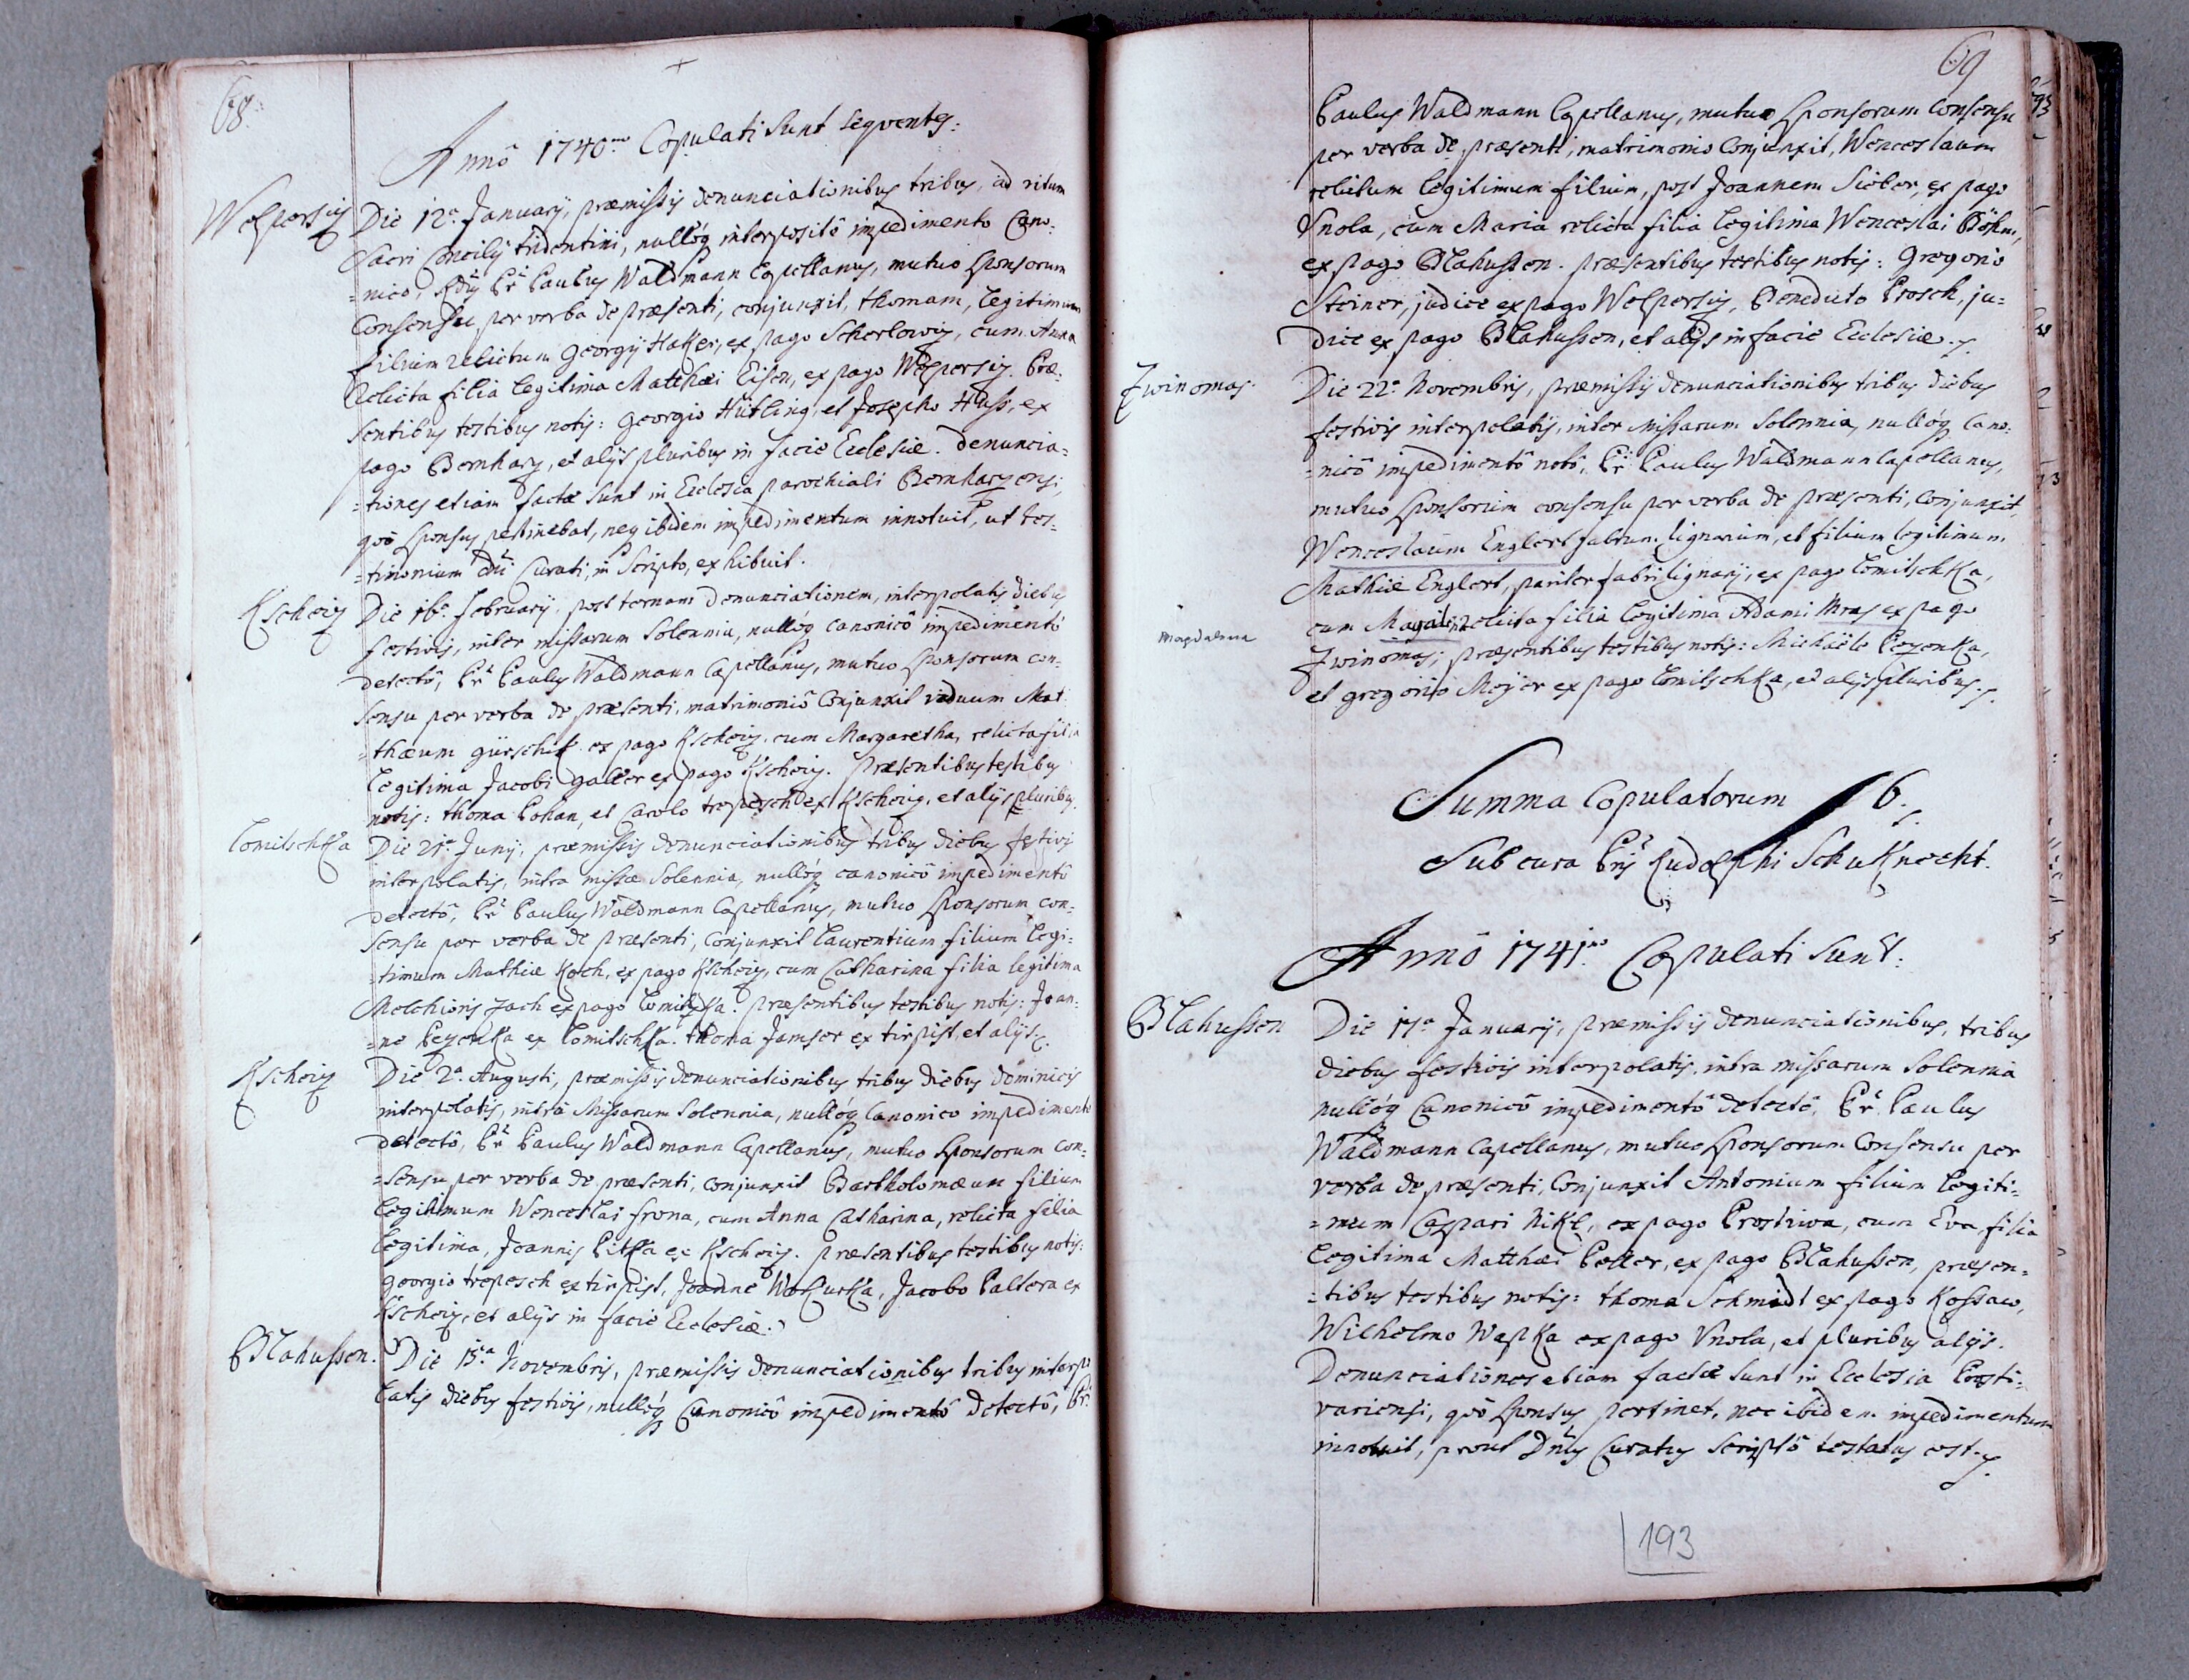 68.
Annô 1740mo Copulati Sunt Seqventes:
Welpersiz
Die 12a. Januarÿ, præmissis denunciationibus tribus, ad ritum
Sacri Concilÿ tridentini, nullóq interpositô impedimento Cano:
=nico, Pr Paulus Waldmann Capellanus, mutuo Sponsorum
Consensu, per verba de præsenti, conjunxit, thomam, legitimum
filium relictum Georgÿ Haker, ex pago Scherlowiz, cum Anna
relicta filia legitima Matthæi Eisen, ex pago Welpersiz. Præ:
sentibus testibus notis: Georgio Hütling, et Josepho Huss, ex
pago Bernharz, et alÿs pluribus in facie Ecclesiæ. denuncia=
=tiones etiam factæ sunt in Ecclesia parochiali Bernharzensi,
qvô Sponsus pertinebat, neq ibidem impedimentum innotuit, ut tes=
=timonium Curati, in Scripto, exhibuit.
Kscheiz
Die 16a. februarÿ, post ternam denunciationem, interpolatis diebus
festivis, inter missarum Solennia, nullóq canonicô impedimentô
detectô, Pr Paulus Waldmann Capellanus, mutuo Sponsorum con=
sensu per verba de præsenti, matrimoniô Conjunxit viduum Mat
=thæum gürschik ex pago Kscheiz, cum Margaretha, relicta filia
legitima Jacobi galler ex pago Kscheiz. Præsentibus testibus
notis: thoma Pohan, et Carolo trepesch ex Kscheiz, et alÿs pluribus.
Lomitschka
Die 21a. Junÿ, præmissis denunciationibus tribus diebus festivis
interpolatis, intra missæ Solennia, nullóq canonicô impedimentô
detectô, Pr Paulus Waldmann Capellanus, mutuo Sponsorum con=
Sensu per verba de præsenti, conjunxit Laurentium filium legi=
=timum Mathiæ Koch, ex pago Kscheiz, cum Catharina filia legitima
Melchioris Zach ex pago Lomitschka. præsentibus testibus notis: Joan=
=ne Pezenka ex Lomitschka. thoma Jamser ex tirpist, et alÿs.
Kscheiz
Die 2a. Augusti, præmissis denunciationibus tribus diebus dominicis
interpolatis, intra Missarum Solennia, nullóq Canonico impedimento
detectô, Pr Paulus Waldmann Capellanus, mutuo Sponsorum con=
=sensu per verba de præsenti, conjunxit Bartholomæum filium
legitimum Wenceslai frona, cum Anna Catharina, relicta filia
legitima, Joannis Pitka ex Kscheiz. præsentibus testibus notis:
georgio trepesch ex tirpist, Joanne Wokurka, Jacobo Paltera ex
Kscheiz, et alÿs in facie Ecclesiæ.
Blahussen.
Die 15a. Novembris, præmissis denunciationibus tribus interpo
latis diebus festivis, nullóq Canonicô impedimentô detectô, Pr:
69
Paulus Waldmann Capellanus, mutuo Sponsorum Consensu
per verba de præsenti, matrimonio Conjunxit, Wenceslaum
relictum legitimum filium, post Joannem Sieber, ex pago
Vnola, cum Maria relicta filia legitima Wenceslai Böhm,
ex pago Blahussen. præsentibus testibus notis: Gregorio
Steiner, judice ex pago Welpersiz, Benedicto Prosch, ju=
dice ex pago Blahussen, et alÿs in facie Ecclesiæ.
Zwinomas.
Die 22a. Novembris, præmissis denunciationibus tribus diebus
festivis interpolatis, inter Missarum Solennia, nullóq Cano:
=nicô impedimentô notô, Pr Paulus Waldmann Capellanus,
mutuo Sponsorum consensu per verba de præsenti, conjunxit,
Wenceslaum Englert fabrum lignarium, et filium legitimum
Mathiæ Englert, pariter fabri lignarÿ, ex pago Lomitschka,
Magdalena
cum Magalen relicta filia legitima Adami Mras ex pago
Zwinomas; præsentibus testibus notis: Michäele Pezenka,
et gregorio Meÿer ex pago Lomitschka, et alÿs pluribus.
Summa Copulatorum 6.
Sub cura Pris Rudolphi Schuknecht.
Annô 1741mo Copulati Sunt:
Blahussen
Die 17a Januarÿ, præmissis denunciationibus, tribus
diebus festivis interpolatis, intra missarum Solennia
nullóq Canonicô impedimentô detectô, Pr. Paulus
Waldmann Capellanus, mutuo Sponsorum Consensu per
verba de præsenti, Conjunxit Antonium filium legiti=
=mum Caspari Nikl, ex pago Prostiwa, cum Eva filia
legitima Matthæi Peller, ex pago Blahussen, præsen=
=tibus testibus notis: thoma Schmidt ex pago Kossaw,
Wilhelmo Wapka ex pago Vnola, et pluribus alÿs.
Denunciationes etiam factæ sunt in Ecclesia Prosti:
variensi, qvô Sponsus pertinet, nec ibidem impedimentum
innotuit, prout Dnus Curatus Scriptô testatus est.
193